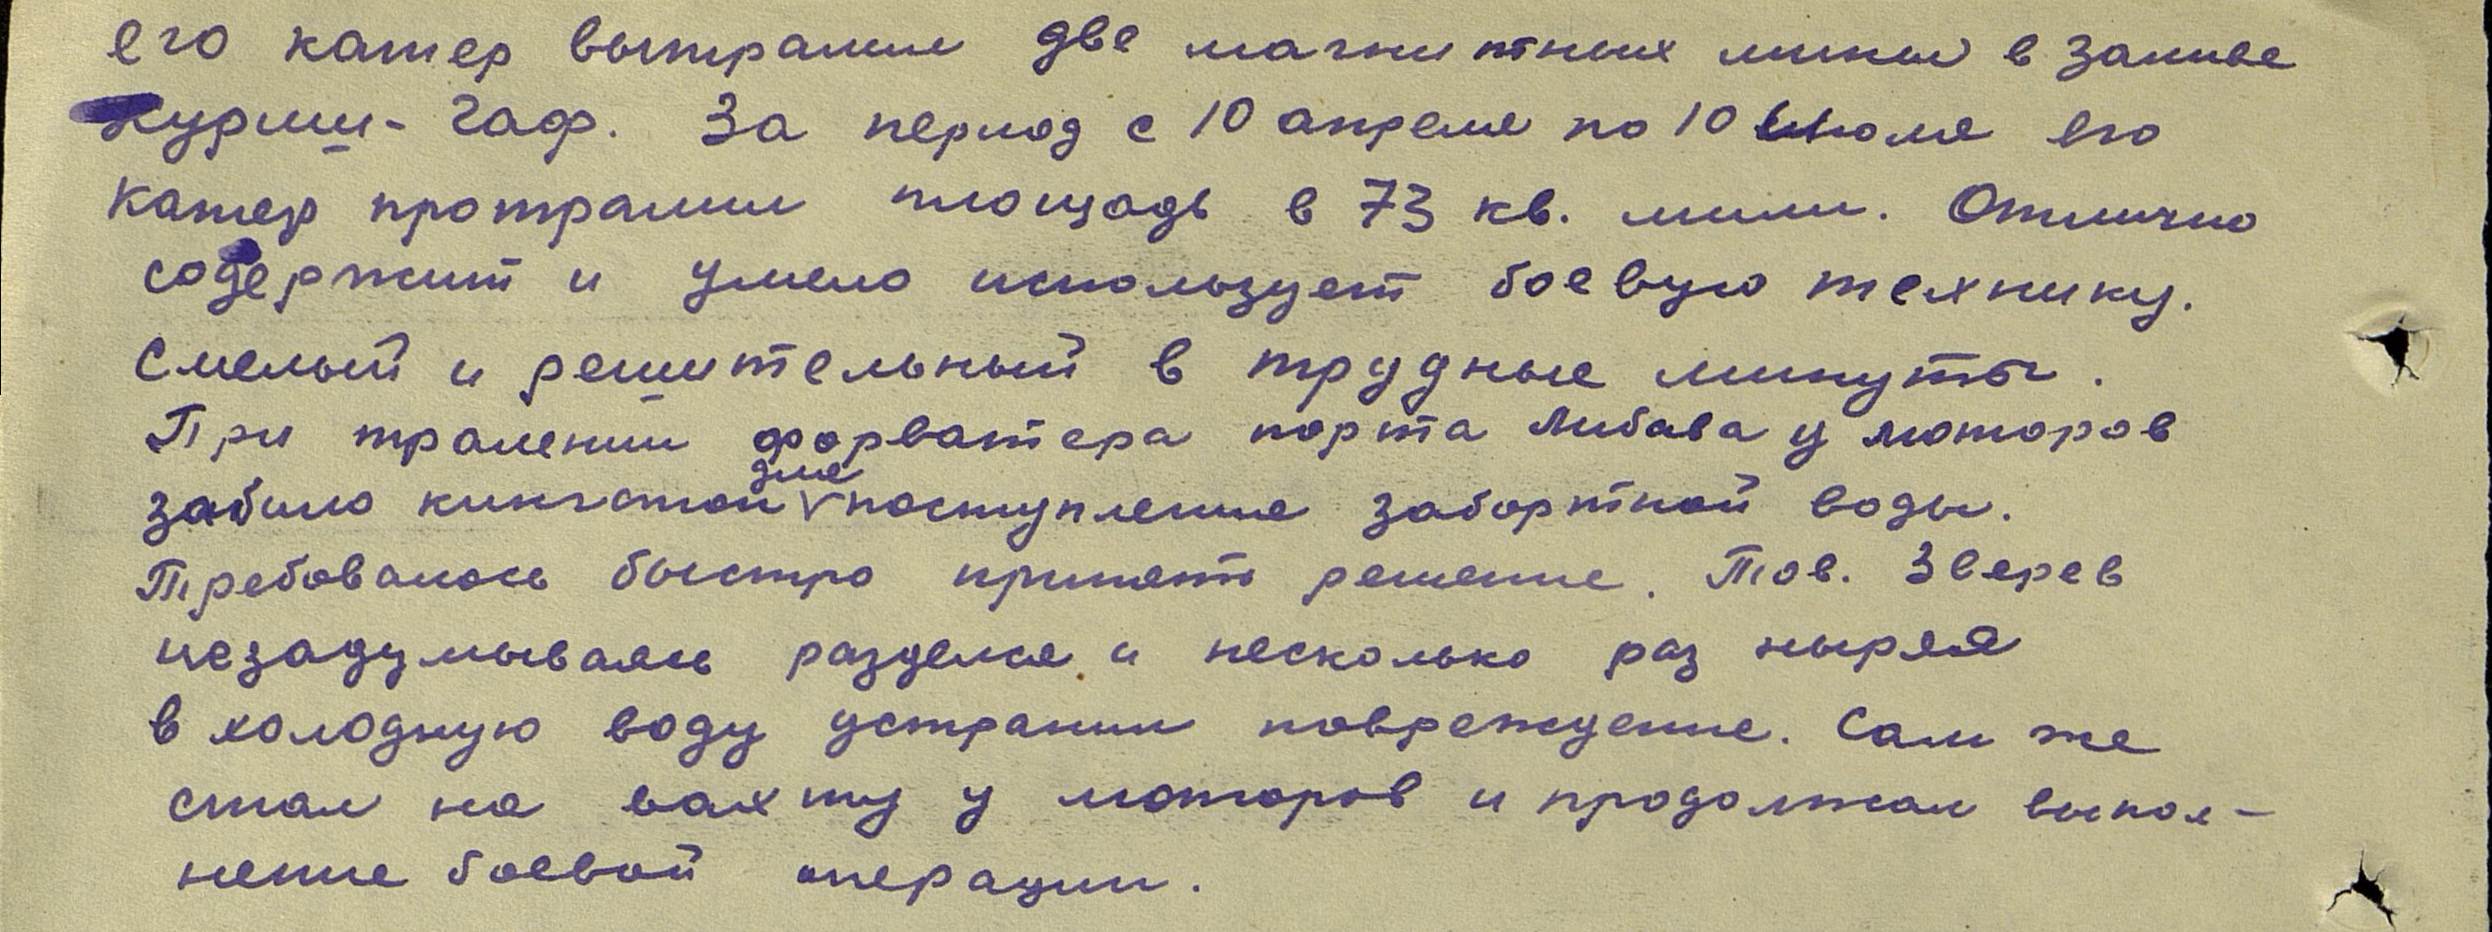 его катер вытралил две магнитных мины в заливе
Куриш-Гаф. За период с 10 апреля по 10 июля его
катер протралил площадь в 73 кв. мили. Отлично
содержит и умело использует боевую технику.
Смелый и решительный в трудные минуты.
При тралении форватера порта Либава у моторов
забило кингстон для поступления забортной воды.
Требовалось быстро принять решение. Тов. Зверев
незадумываясь разделся и несколько раз ныряя
в холодную воду устранил повреждение. Сам же
стал на вахту у моторов и продолжал выпол-
нение боевой операции.